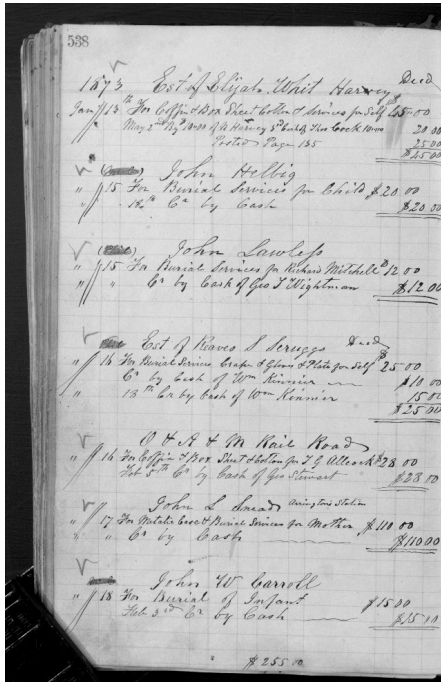 538
1873 Est of Elijah Whit Harvey Decd
Jany 13th For Coffin & Box Sheet Cotton & Services for Self $45.00
May 2nd By 10.00 of N Harvey 3d Cash of Thos Cock 10.00 20 00
Posted Page 135 25 00
$45 00
John Helbig
" 15 For Burial Services for Child $20 00
" 18th Cr by Cash $20 00
John Lawless
" 15 For Burial Services for Richard Mitchell $12 00
" " Cr by Cash of Geo T Wightman $12 00
Est of Reaves S Scruggs Decd
" 16 For Burial Services Crape & Gloves & Plate for Self $25 00
" Cr by Cash of Wm Kinnier $10 00
" 18th Cr by Cash of Wm Kinnier 15 00
$25 00
O & A & M Rail Road
" 16 For Coffin & Box Sheet & Cotton for T G Allcock $28 00
Feb 5th Cr by Cash of Geo Stewart $28 00
John L Smead Arringtons Station
" 17 For Metalic Case & Burial Services for Mother $110 00
" " Cr by Cash $110 00
John W Carroll
" 18 For Burial of Infant $15 00
Feb 3rd Cr by Cash $15 00
$255.00